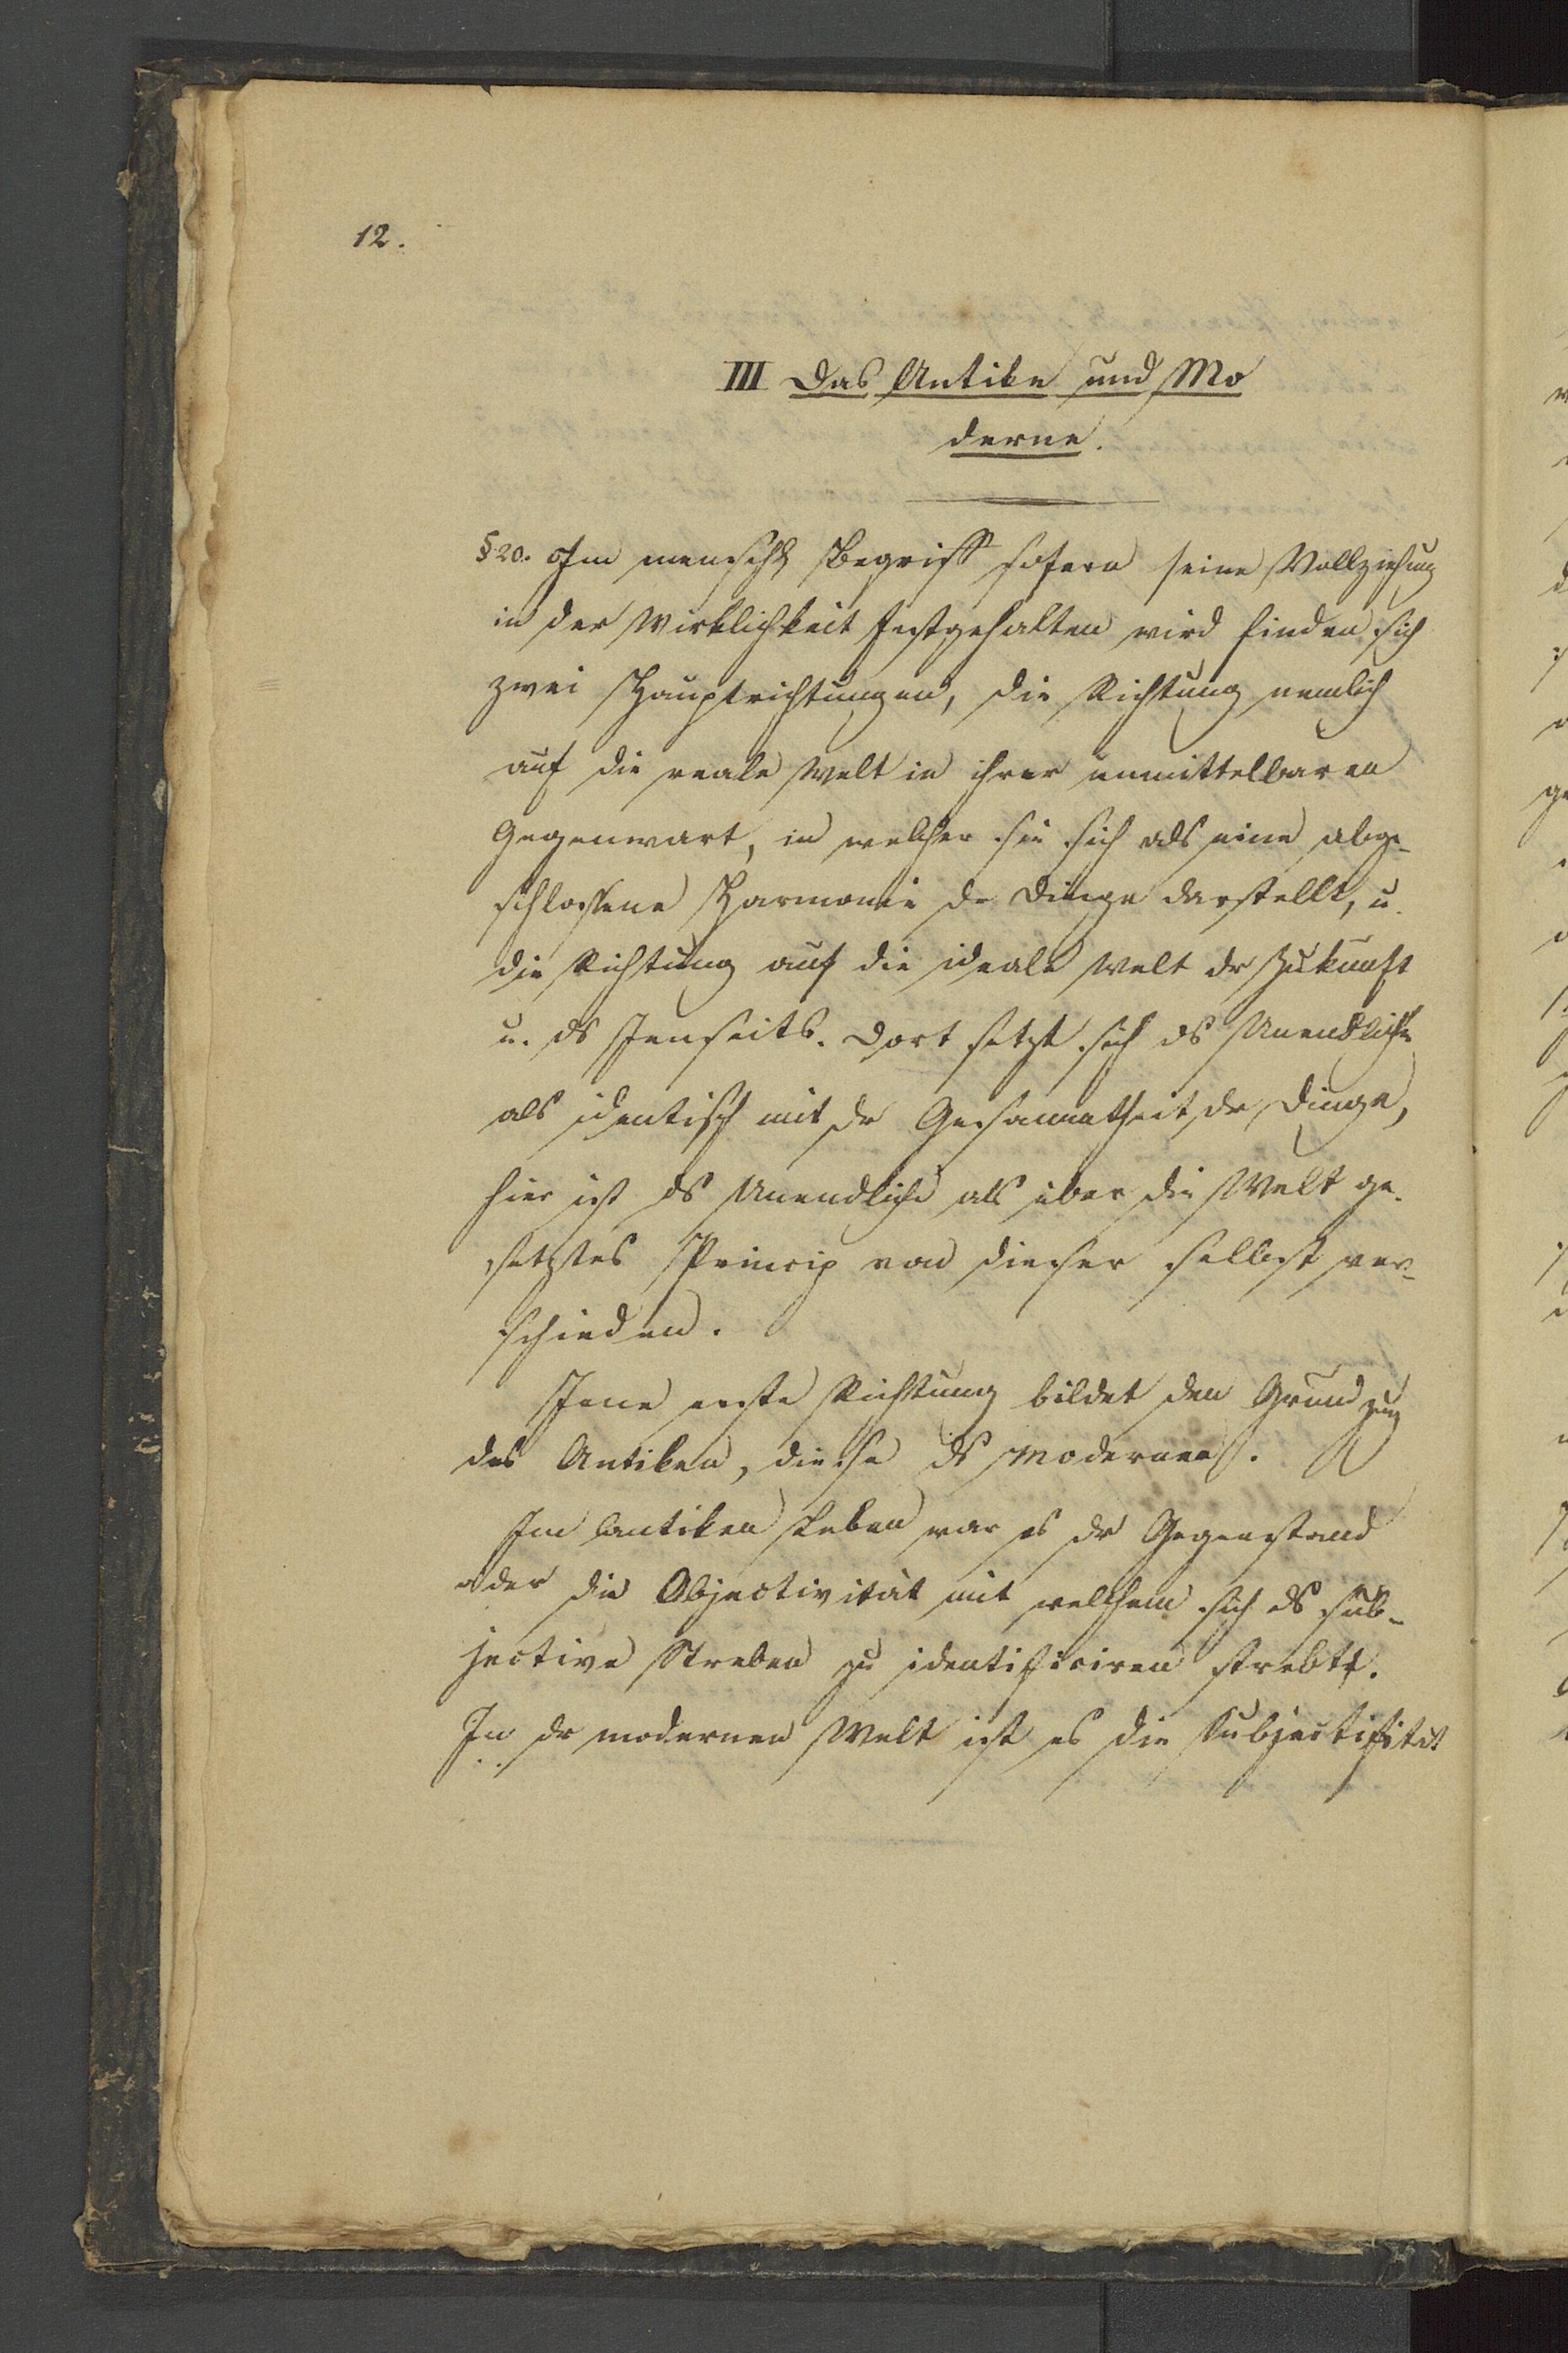 12.
III Das Antike und Mo
derne.
§ 20. Im menschl Begriff sofern seine Vollziehung
in der Wirklichkeit festgehalten wird finden sich
zwei Hauptrichtungen, die Richtung nemlich
auf die reale Welt in ihrer unmittelbaren
Gegenwart, in welcher sie sich als eine abge-
schlossene Harmonie dr Dinge darstellt, u.
die Richtung auf die ideale Welt dr Zukunft
u. ds Jenseits. Dort setzt sich ds Unendliche
als identisch mit dr Gesammtheit dr Dinge,
hier ist ds Unendliche als über die Welt ge-
setztes Princip von dieser selbst ver-
schieden.
Jene erste Richtung bildet den Grundzug
des Antiken, diese ds Modernen.
Im antiken Leben war es dr Gegenstand
oder die Objectivität mit welchem sich ds sub-
jective Streben zu identificiren strebte.
In dr modernen Welt ist es die Subjectifität